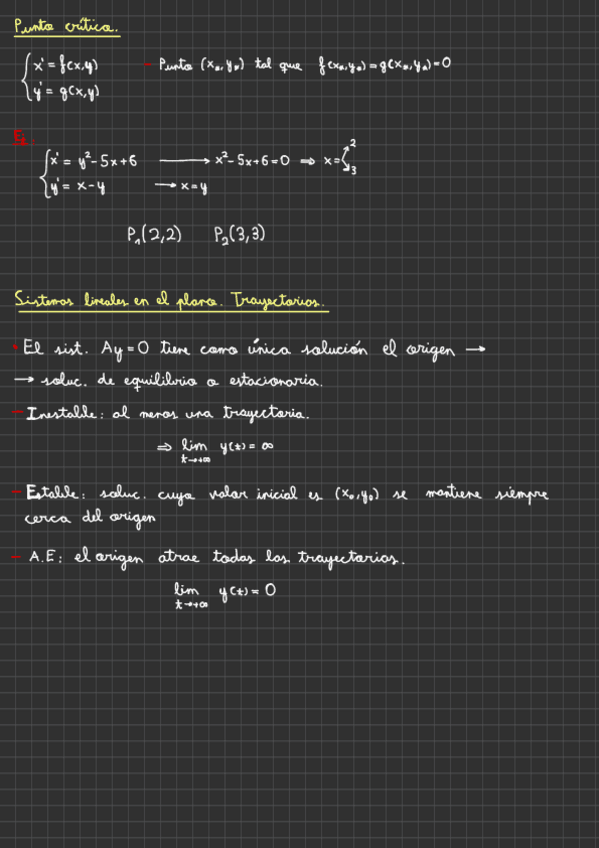 Punto crítico.
{ x' = f(x,y)   - Punto (x*, y*) tal que f(x*,y*) = g(x*,y*) = 0
{ y' = g(x,y)
Ej:
{ x' = y² - 5x + 6 ⟶ x² - 5x + 6 = 0 ⇒ x = 2, 3
{ y' = x - y ⟶ x = y
P₁(2,2)   P₂(3,3)
Sistemas lineales en el plano. Trayectorias.
· El sist. Ay = 0 tiene como única solución el origen →
→ soluc. de equilibrio o estacionaria.
- Inestable: al menos una trayectoria.
⇒ lim y(t) = ∞
t→+∞
- Estable: soluc. cuyo valor inicial es (x₀,y₀) se mantiene siempre
cerca del origen
- A.E: el origen atrae todas las trayectorias.
lim y(t) = 0
t→+∞